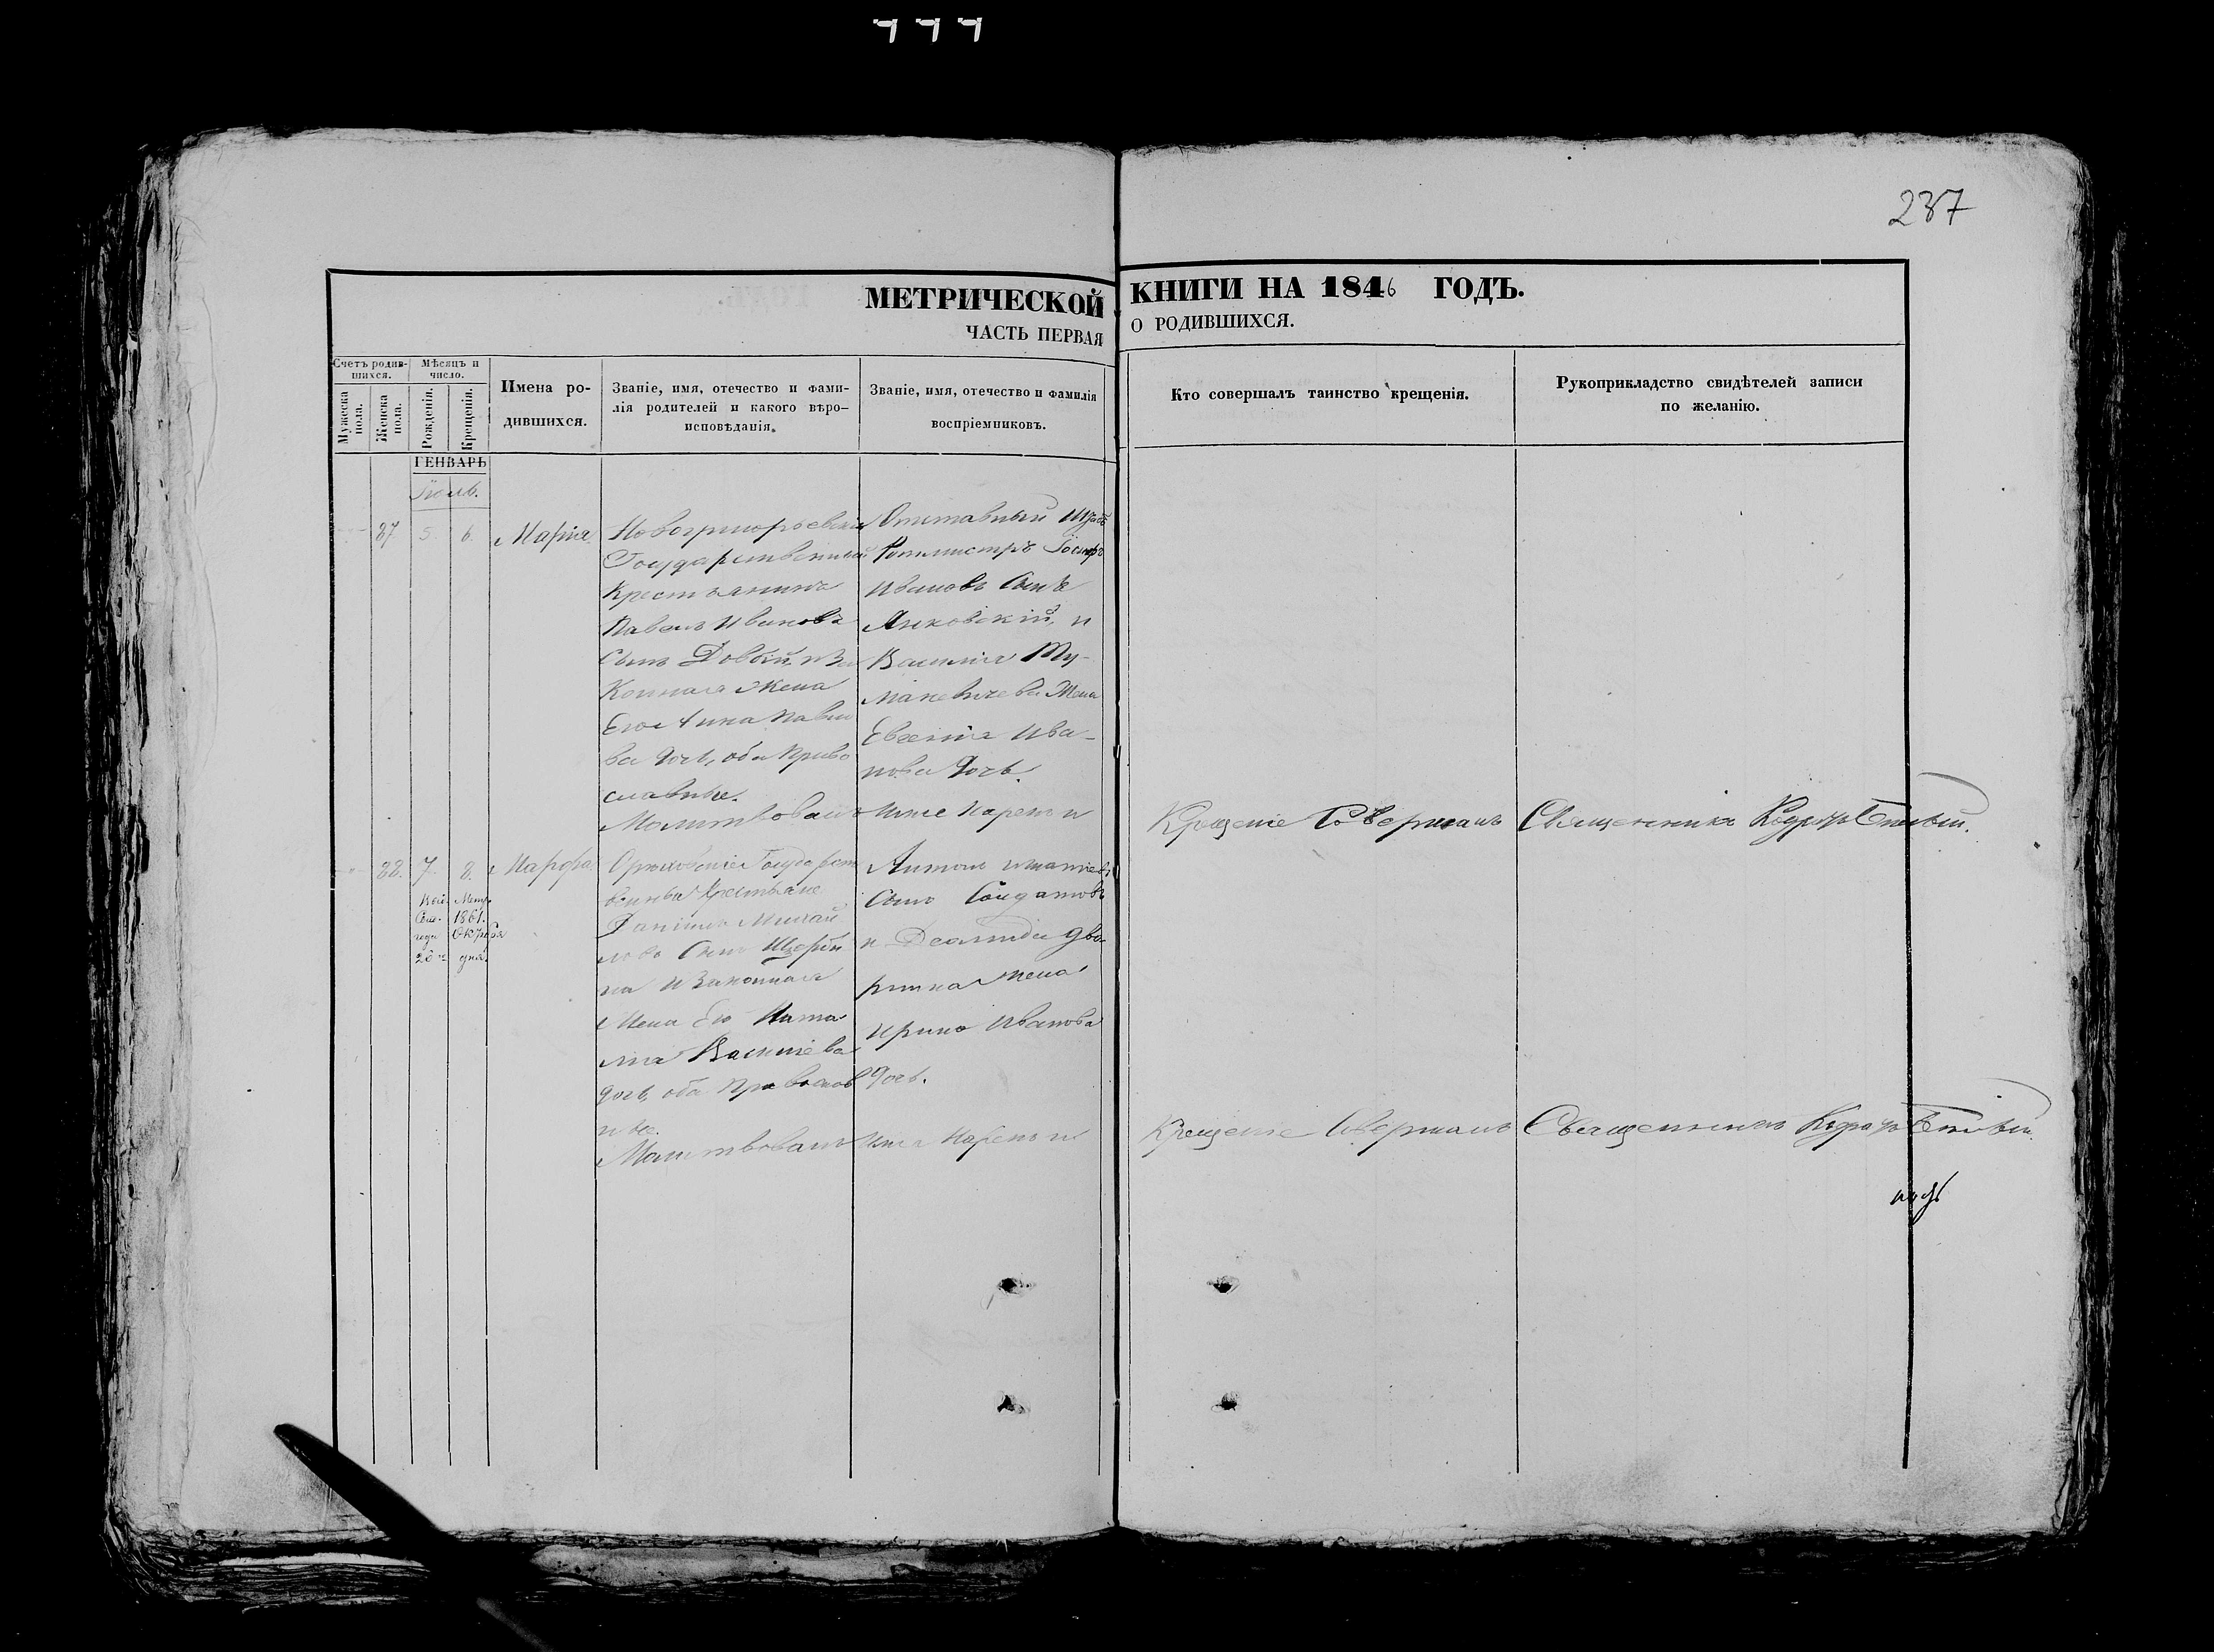 237
МЕТРИЧЕСКОЙ КНИГИ НА 1846 ГОДЪ.
ЧАСТЬ ПЕРВАЯ О РОДИВШИХСЯ.
Счетъ родившихся.
Мужеска пола.
Женска пола.
Мѣсяцъ и число.
Рожденія.
Крещенія.
Имена родившихся.
Званіе, имя, отечество и фамилія родителей и какого вѣроисповѣданія.
Званіе, имя, отечество и фамилія воспріемниковъ.
Кто совершалъ таинство крещенія.
Рукоприкладство свидѣтелей записи по желанію.
ГЕНВАРЬ
Іюль.
87. 5. 6. Марія
Новогригорьевскій
Государственный
Крестьянинъ
Павелъ Ивановъ
Сынъ Довбий, и За
конная Жена
Его Анна Павло
ва дочь, оба Право
славные.
Отставный Штабъ
Ротмистръ
Ивановъ Сынъ
Янковскій, и
Василія Ту-
маневичева Жена
Евгенія Ива-
нова дочь.
Молитвовалъ имя нарекъ и
Крещеніе Совершалъ Священникъ
88. 7. 8. Марфа
Мет.
1861.
года Октября
20 дня.
Государст
венные Крестьяне
Даніилъ Михай
ловъ Сынъ Щерби
на и Законная
Жена Его Ната
лія Василіева
дочь, оба Православ
ные.
Антонъ Игнатіевъ
Сынъ Солдатовъ
и
Жена
Ирина Иванова
дочь.
Молитвовалъ имя нарекъ и
Крещеніе Совершалъ Священникъ